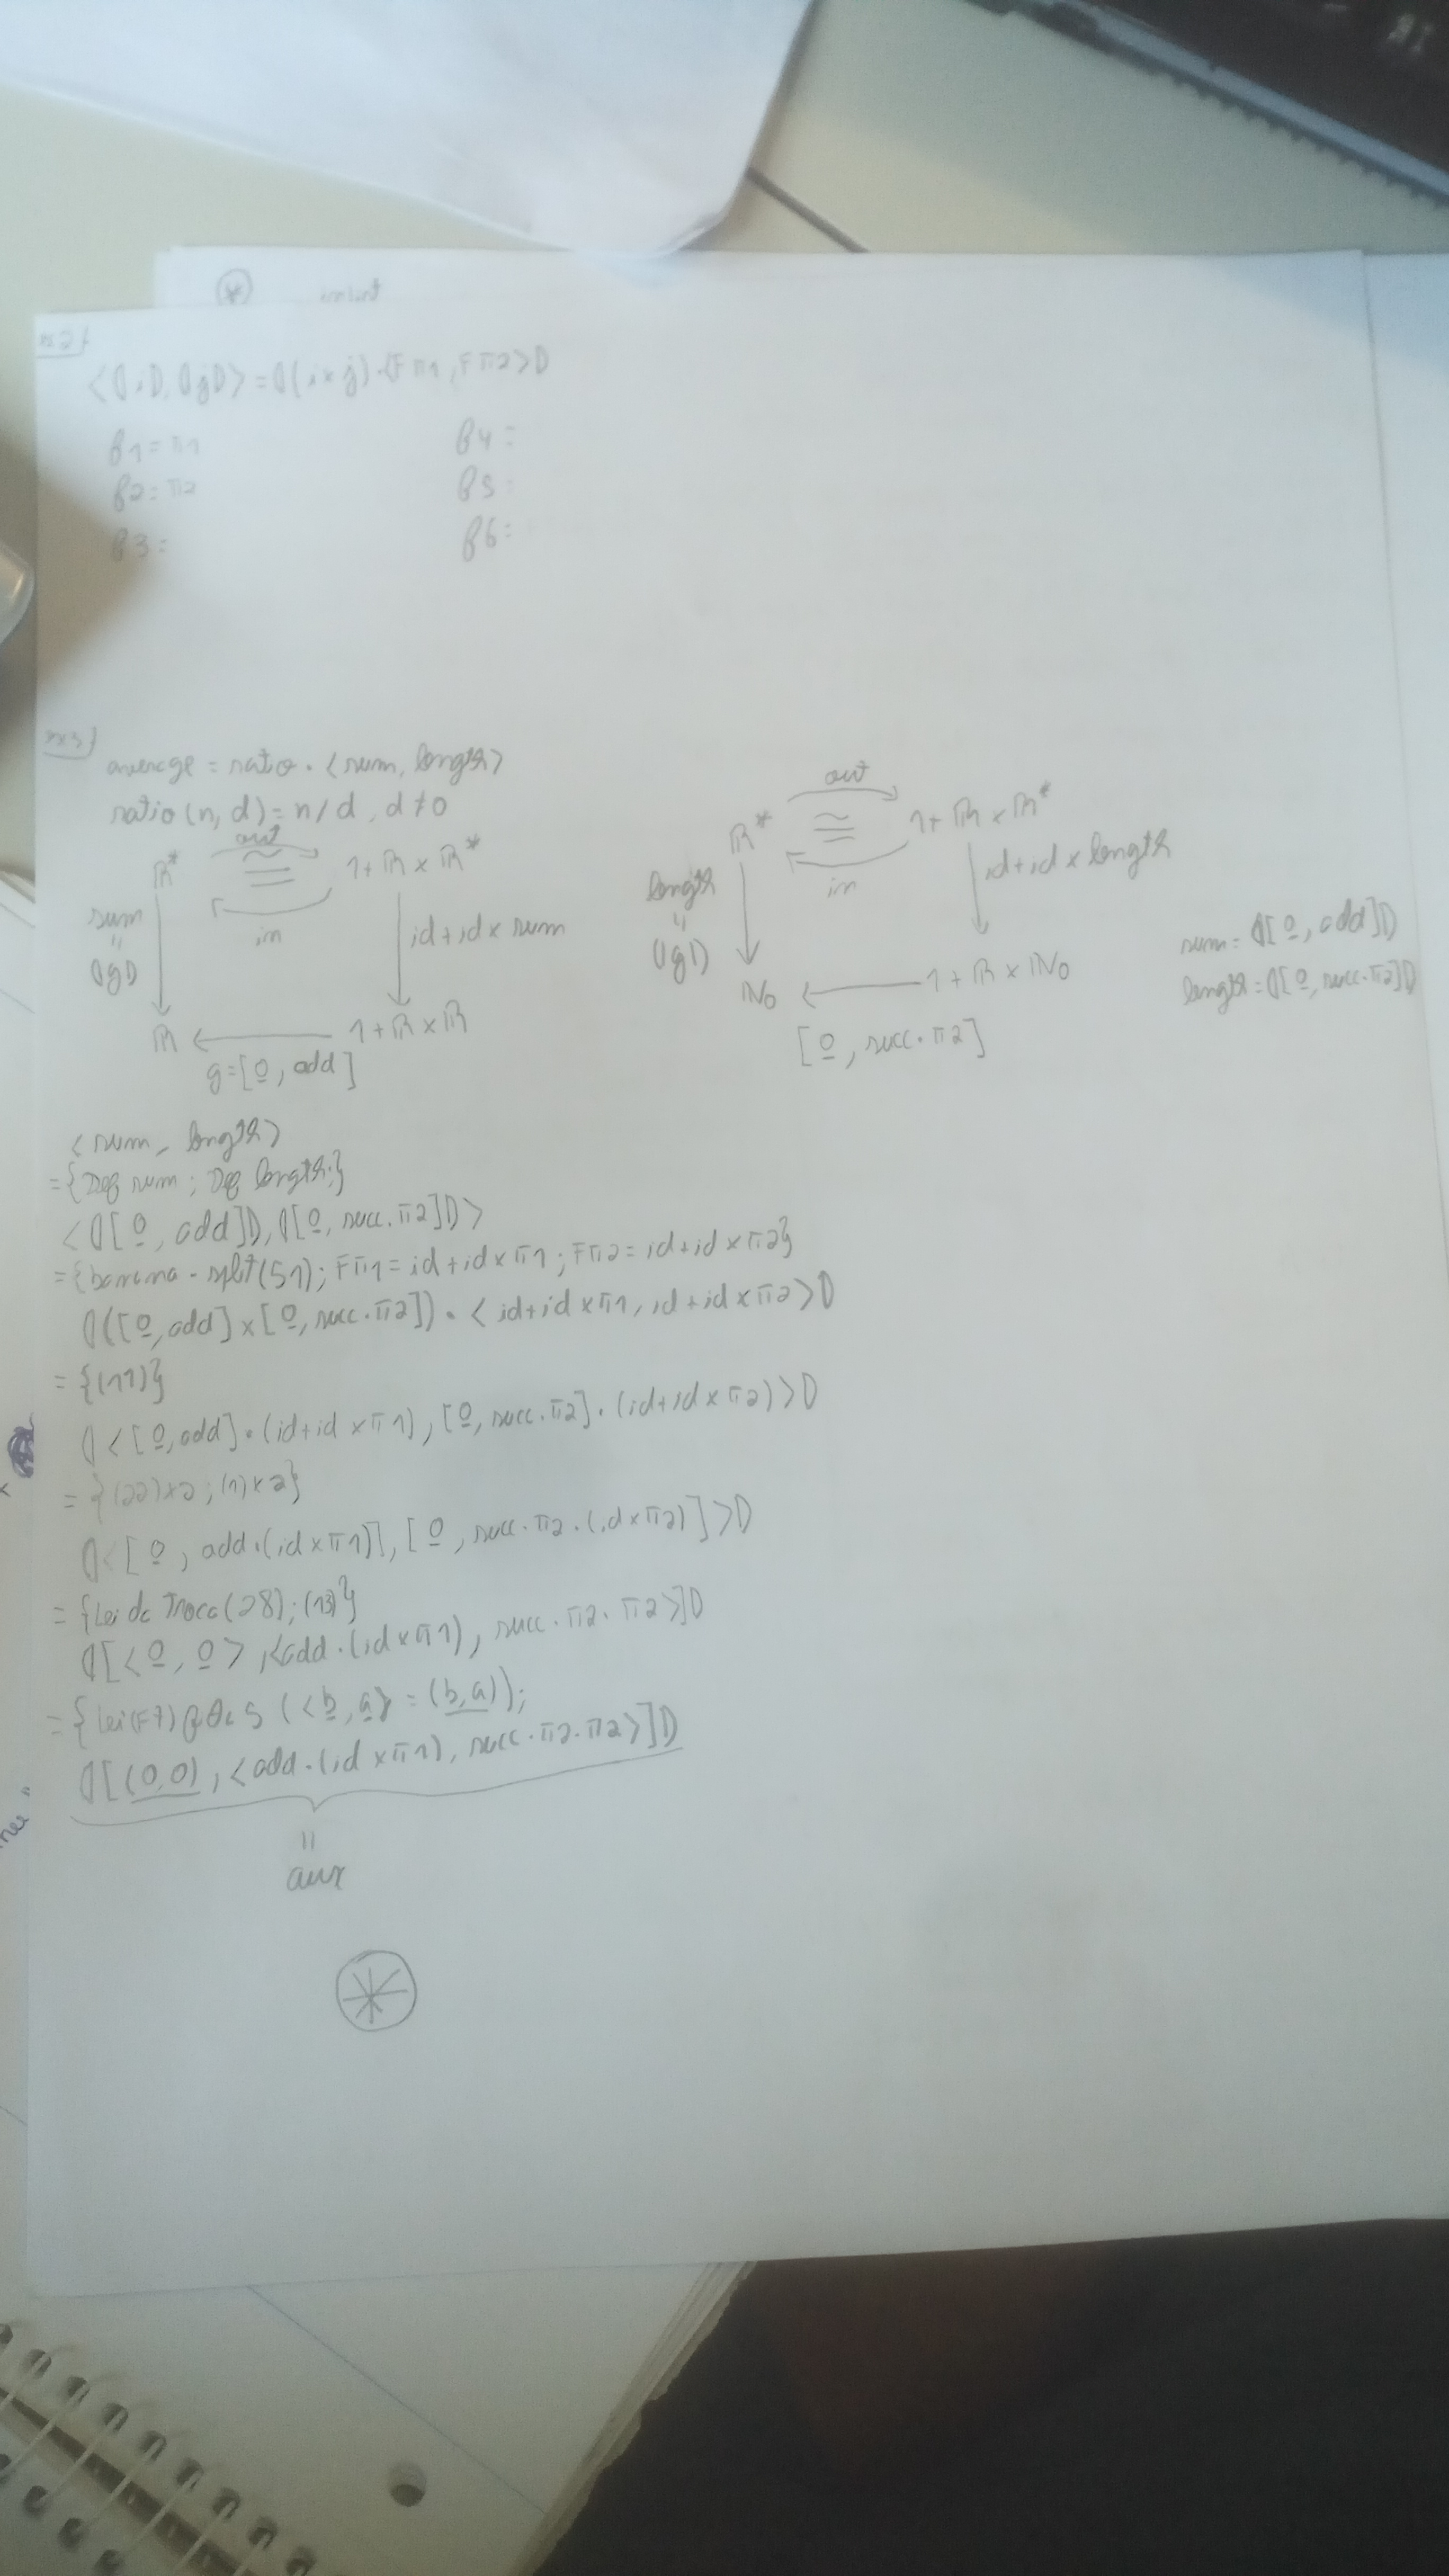 ex2}
<(|i|), (|j|)> = (|(i×j)·<Fπ1, Fπ2>|)
f1 = π1
f2 = π2
f3 =
f4 =
f5 =
f6 =
ex3}
average = ratio · <sum, length>
ratio (n, d) = n/d, d ≠ 0
out
ℝ* ≅ 1 + ℝ × ℝ*
in
sum
=
(|g|)
id + id × sum
ℝ ← 1 + ℝ × ℝ
g = [0, add]
out
ℝ* ≅ 1 + ℝ × ℝ*
in
length
=
(|g|)
id + id × length
ℕ0 ← 1 + ℝ × ℕ0
[0, succ · π2]
sum = (|[0, add]|)
length = (|[0, succ · π2]|)
<sum, length>
= {Def sum; Def length;}
<(|[0, add]|), (|[0, succ · π2]|)>
= {banana-split (51); Fπ1 = id + id × π1; Fπ2 = id + id × π2}
(|([0, add] × [0, succ · π2]) · <id + id × π1, id + id × π2>|)
= {(11)}
(|<[0, add] · (id + id × π1), [0, succ · π2] · (id + id × π2)>|)
= {(22)×2; (1)×2}
(|<[0, add · (id × π1)], [0, succ · π2 · (id × π2)]>|)
= {Lei da Troca (28); (13)}
(|[<0, 0>, <add · (id × π1), succ · π2 · π2>]|)
= {Lei (F7) (<b, a> = (b, a));
(|[(0,0), <add · (id × π1), succ · π2 · π2>]|)
=
aux